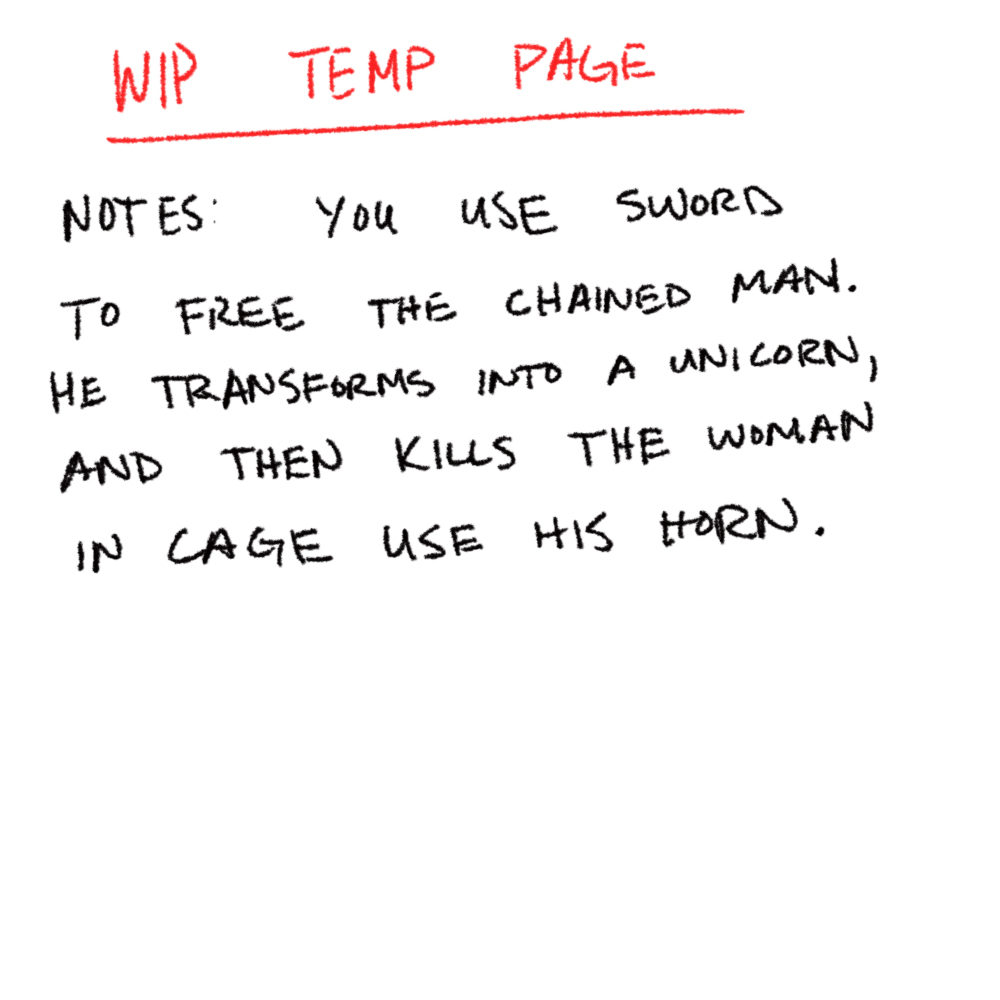 WIP TEMP PAGE
NOTES: YOU USE SWORD
TO FREE THE CHAINED MAN.
HE TRANSFORMS INTO A UNICORN,
AND THEN KILLS THE WOMAN
IN CAGE USE HIS HORN.